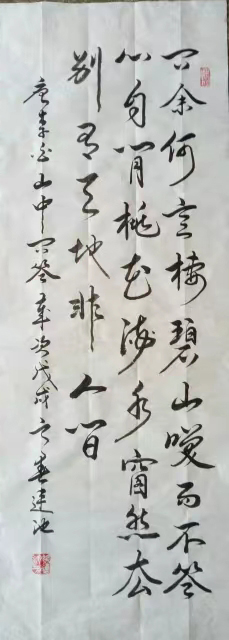 问余何意栖碧山笑而不答
心自闲桃花流水窅然去
别有天地非人间
唐李白山中问答岁次戊戌之春建池